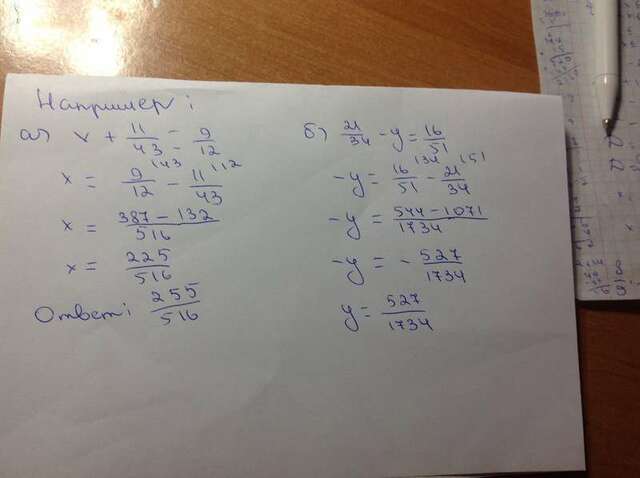 Например:
а) x + 11/43 = 9/12
x = 9/12 - 11/43
x = 387 - 132/516
x = 225/516
Ответ: 255/516
б) 21/34 - y = 16/51
-y = 16/51 - 21/34
-y = 544 - 1071/1734
-y = - 527/1734
y = 527/1734